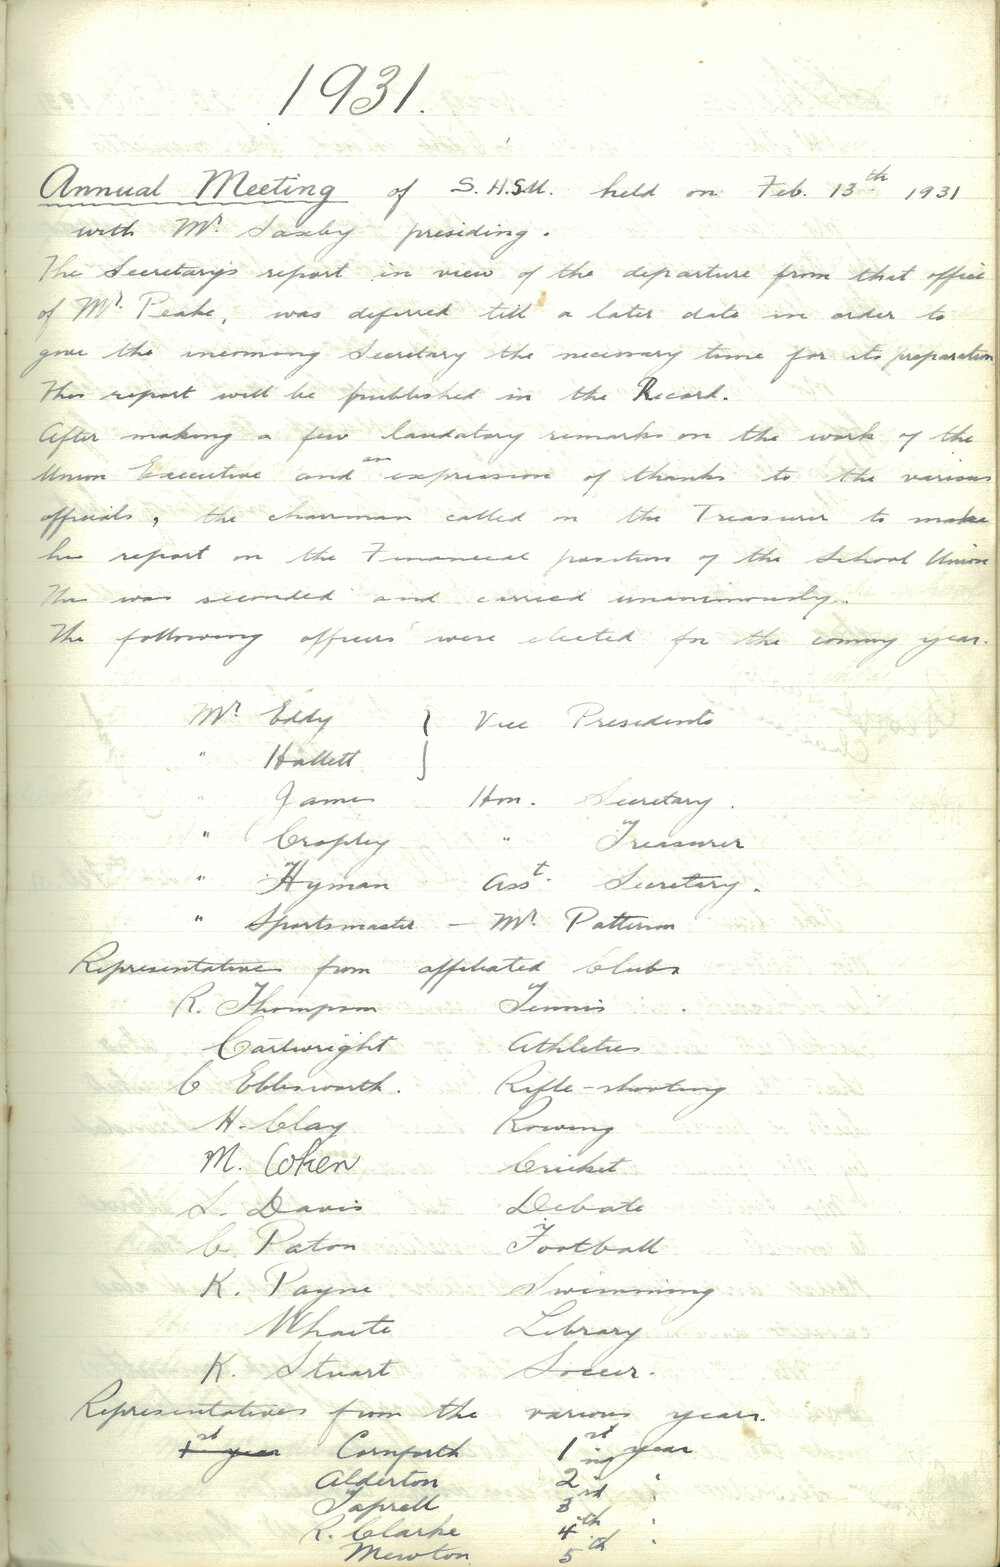 1931.
Annual Meeting of S.H.S.U. held on Feb. 13th 1931
with Mr Saxby presiding.
The Secretary's report in view of the departure from that office
of Mr. Peake, was deferred till a later date in order to
give the incoming Secretary the necessary time for its preparation
This report will be published in the Record.
After making a few laudatory remarks on the work of the
Union Executive and an expression of thanks to the various
officials, the chairman called on the Treasurer to make
his report on the Financial position of the School Union
This was seconded and carried unanimously.
The following officers were elected for the coming year.
Mr Eddy } Vice Presidents
" Hallett
" James Hon. Secretary.
" Cropley " Treasurer
" Hyman Asst. Secretary.
" Sportsmaster — Mr Patterson
Representatives from affiliated Clubs
R. Thompson Tennis
Cartwright Athletics
C Ebbsworth. Rifle-shooting
H. Clay Rowing
M. Cohen Cricket
L. Davis Debate
C. Paton Football
K. Payne Swimming
Whaite Library
K. Stuart Soccer.
Representatives from the various years.
1st year Cornforth 1st year
Alderton 2nd "
Taprell 3rd "
R. Clarke 4th "
Mewton 5th